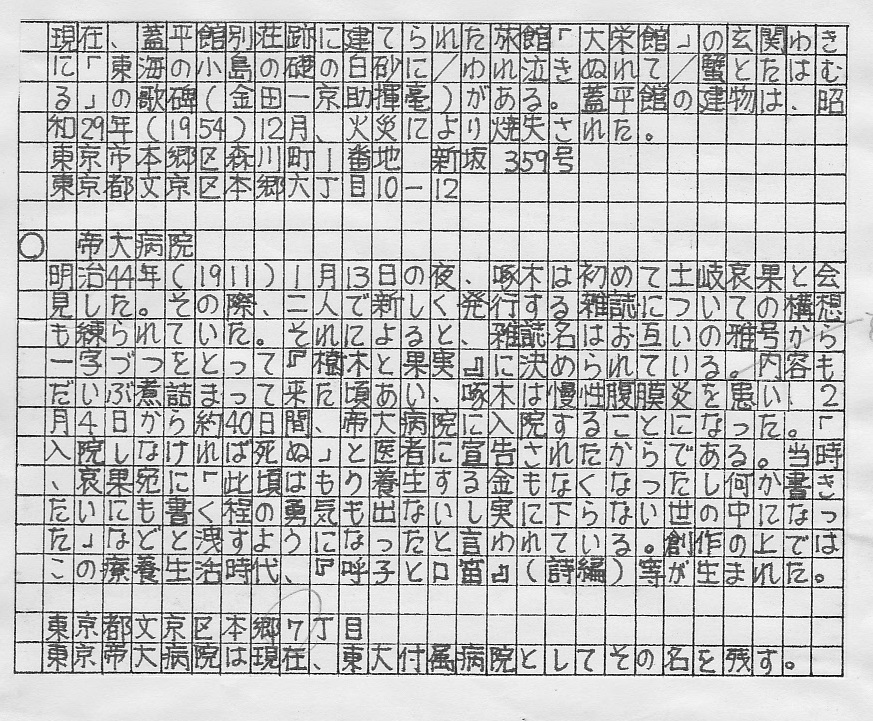 現在、蓋平館別荘跡に建てられた旅館「大栄館」の玄関わき
に「東海の小島の磯の白砂に／われ泣きぬれて／蟹とたはむ
る」の歌碑（金田一京助揮毫）がある。蓋平館の建物は、昭
和29年（1954）12月、火災により焼失された。
東京市本郷区森川町1番地　新坂　359号
東京都文京区本郷六丁目10－12
○　帝大病院
明治44年（1911）1月13日の夜、啄木は初めて土岐哀果と会
見した。その際、二人で新しく発行する雑誌についての構想
も練られていた。それによると、雑誌名はお互いの雅号から
一字づつをとって『樹木と果実』に決められている。内容も
だいぶ煮詰まって来た頃あい、啄木は慢性腹膜炎を患い、2
月4日から約40日間、帝大病院に入院することになった。「
入院しなければ死ぬ」と医者に宣告されたからである。当時
、哀果宛に「此頃はもう養生する金もなくなったし何か書き
たいにも書く程の勇気も出ないし実に下らない世の中になっ
た」などと洩すようになったと言われている。創作の上では
この療養生活時代、『呼子と口笛』（詩編）等が生まれた。
東京都文京区本郷7丁目
東京帝大病院は現在、東大付属病院としてその名を残す。